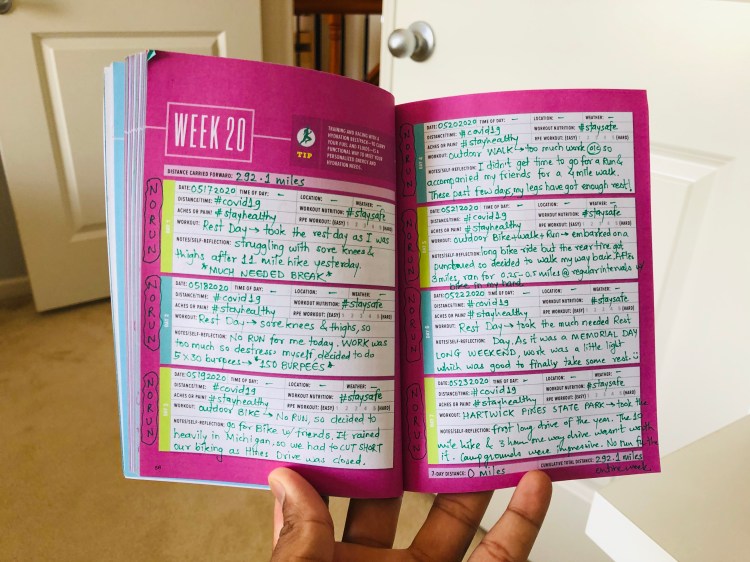 WEEK 20
TIP
TRAINING AND RACING WITH A
HYDRATION BELT/PACK—TO CARRY
YOUR FUEL AND FLUIDS—IS A
FUNCTIONAL WAY TO MEET YOUR
PERSONALIZED ENERGY AND
HYDRATION NEEDS.
DISTANCE CARRIED FORWARD: 292.1 miles
NO RUN
DAY 1
DATE: 05172020 TIME OF DAY: – LOCATION: – WEATHER: –
DISTANCE/TIME: #covid19 WORKOUT NUTRITION: #staysafe
ACHES OR PAIN? #stayhealthy RPE WORKOUT: (EASY) 1 2 3 4 5 (HARD)
WORKOUT: Rest Day → took the rest day as I was
NOTES/SELF-REFLECTION: struggling with sore knees &
thighs after 11 mile hike yesterday.
*MUCH NEEDED BREAK*
NO RUN
DAY 2
DATE: 05182020 TIME OF DAY: – LOCATION: – WEATHER: –
DISTANCE/TIME: #covid19 WORKOUT NUTRITION: #staysafe
ACHES OR PAIN? #stayhealthy RPE WORKOUT: (EASY) 1 2 3 4 5 (HARD)
WORKOUT: Rest Day → sore knees & thighs, so
NOTES/SELF-REFLECTION: NO RUN for me today. WORK was
too much so destress myself, decided to do
5x30 burpees → *150 BURPEES*
NO RUN
DAY 3
DATE: 05192020 TIME OF DAY: – LOCATION: – WEATHER: –
DISTANCE/TIME: #covid19 WORKOUT NUTRITION: #staysafe
ACHES OR PAIN? #stayhealthy RPE WORKOUT: (EASY) 1 2 3 4 5 (HARD)
WORKOUT: outdoor BIKE → No RUN, so decided to
NOTES/SELF-REFLECTION: go for Bike w/ friends. It rained
heavily in Michigan, so we had to CUT SHORT
our biking as Hines Drive was closed.
NO RUN
DATE: 05202020 TIME OF DAY: – LOCATION: – WEATHER: –
DISTANCE/TIME: #covid19 WORKOUT NUTRITION: #staysafe
ACHES OR PAIN? #stayhealthy RPE WORKOUT: (EASY) 1 2 3 4 5 (HARD)
WORKOUT: outdoor WALK → too much work so
NOTES/SELF-REFLECTION: I didn't get time to go for a Run &
accompanied my friends for a mile walk.
These past few days, my legs have got enough rest!
NO RUN
DATE: 05212020 TIME OF DAY: – LOCATION: – WEATHER: –
DISTANCE/TIME: #covid19 WORKOUT NUTRITION: #staysafe
ACHES OR PAIN? #stayhealthy RPE WORKOUT: (EASY) 1 2 3 4 5 (HARD)
WORKOUT: outdoor Bike+walk+Run → embarked on a
NOTES/SELF-REFLECTION: long bike ride but the rear tire got
punctured so decided to walk my way back. After
miles, ran for 0.25-0.5 miles @ regular intervals w/
bike in my hand.
NO RUN
DATE: 05222020 TIME OF DAY: – LOCATION: – WEATHER: –
DISTANCE/TIME: #covid19 WORKOUT NUTRITION: #staysafe
ACHES OR PAIN? #stayhealthy RPE WORKOUT: (EASY) 1 2 3 4 5 (HARD)
WORKOUT: Rest Day → took the much needed Rest
NOTES/SELF-REFLECTION: Day. As it was a MEMORIAL DAY
LONG WEEKEND, work was a little light
which was good to finally take some rest.
NO RUN
DATE: 05232020 TIME OF DAY: – LOCATION: – WEATHER: –
DISTANCE/TIME: #covid19 WORKOUT NUTRITION: #staysafe
ACHES OR PAIN? #stayhealthy RPE WORKOUT: (EASY) 1 2 3 4 5 (HARD)
WORKOUT: HARTWICK PINES STATE PARK → took the
NOTES/SELF-REFLECTION: first long drive of the year. The 10
mile hike & 3 hour one way drive wasn't worth
it. Campgrounds were impressive. No run for the
entire week.
7-DAY DISTANCE: 0 miles CUMULATIVE TOTAL DISTANCE: 292.1 miles